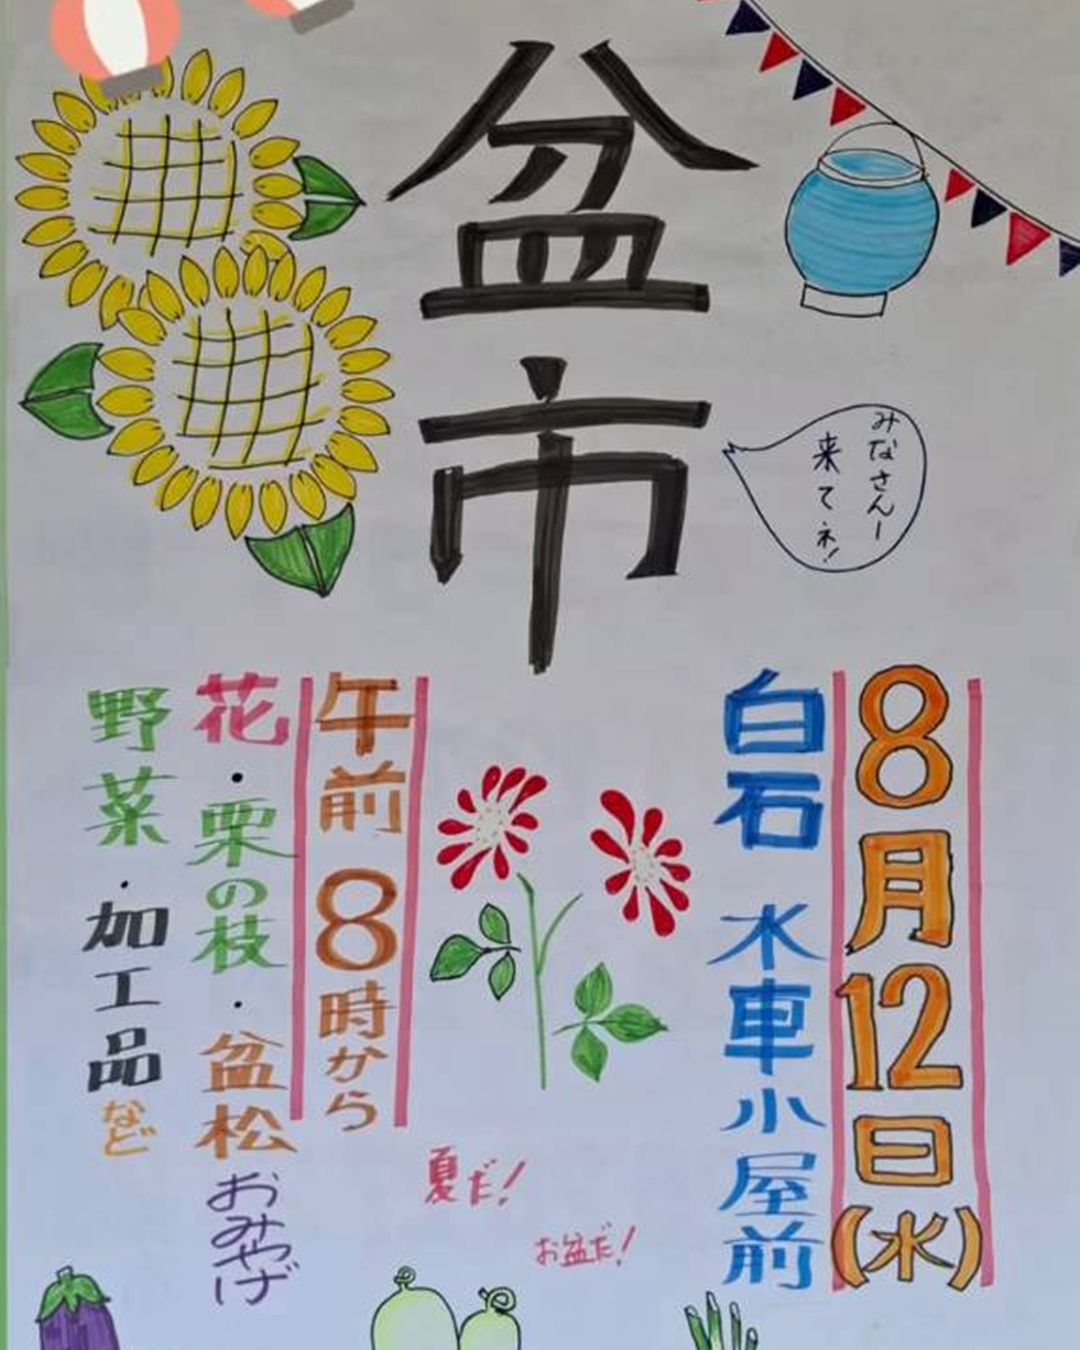 盆市
みなさんー
来てネ!
8月12日(水)
白石 水車小屋前
午前8時から
花・栗の枝・盆松 おみやげ
野菜・加工品など
夏だ!
お盆だ!